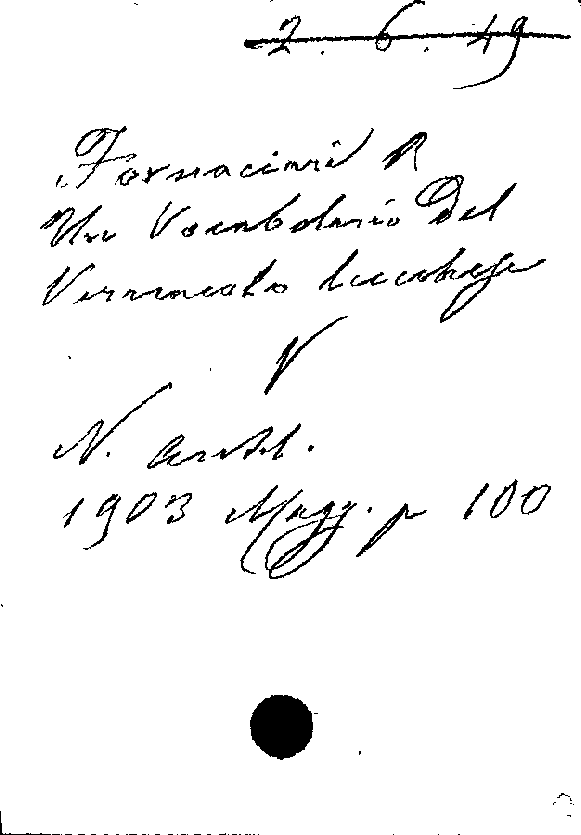 2. 6. 49
Fornaciari R
Un Vocabolario Del
Vernacolo lucchese
V
N. Antol.
1903 Magg. p 100